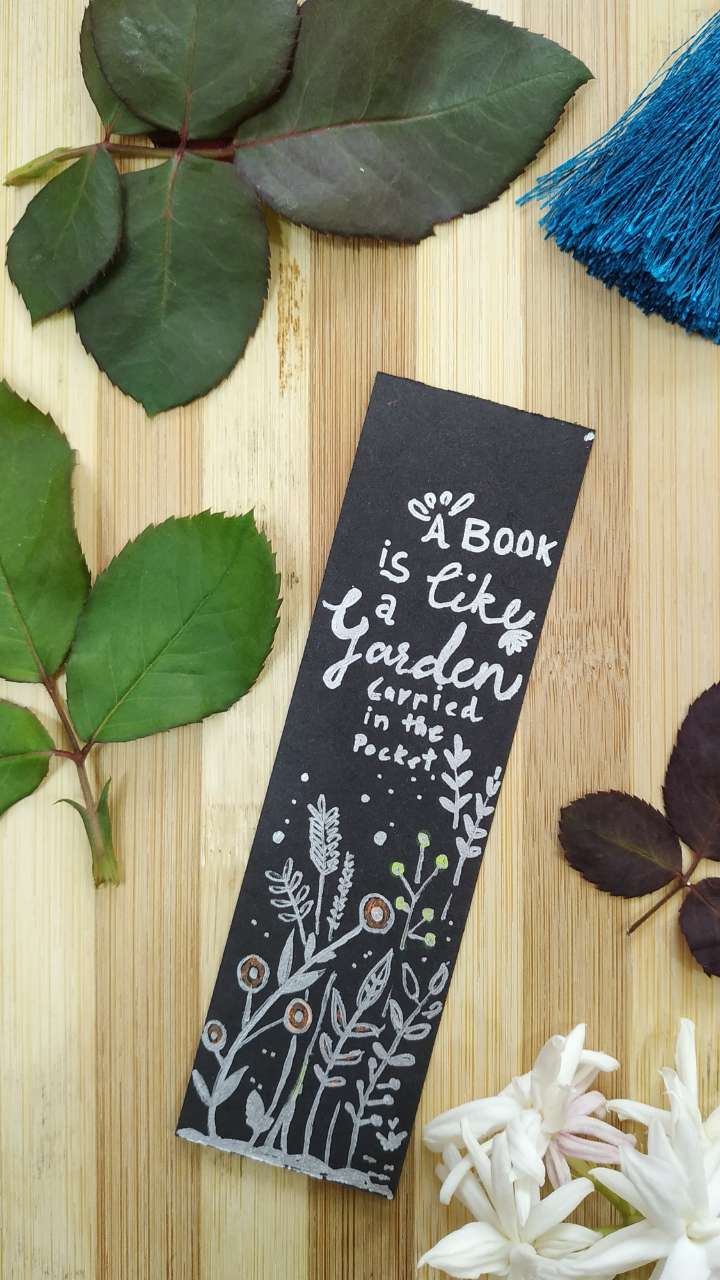 A BOOK
is like
a
Garden
Carried
in the
Pocket.